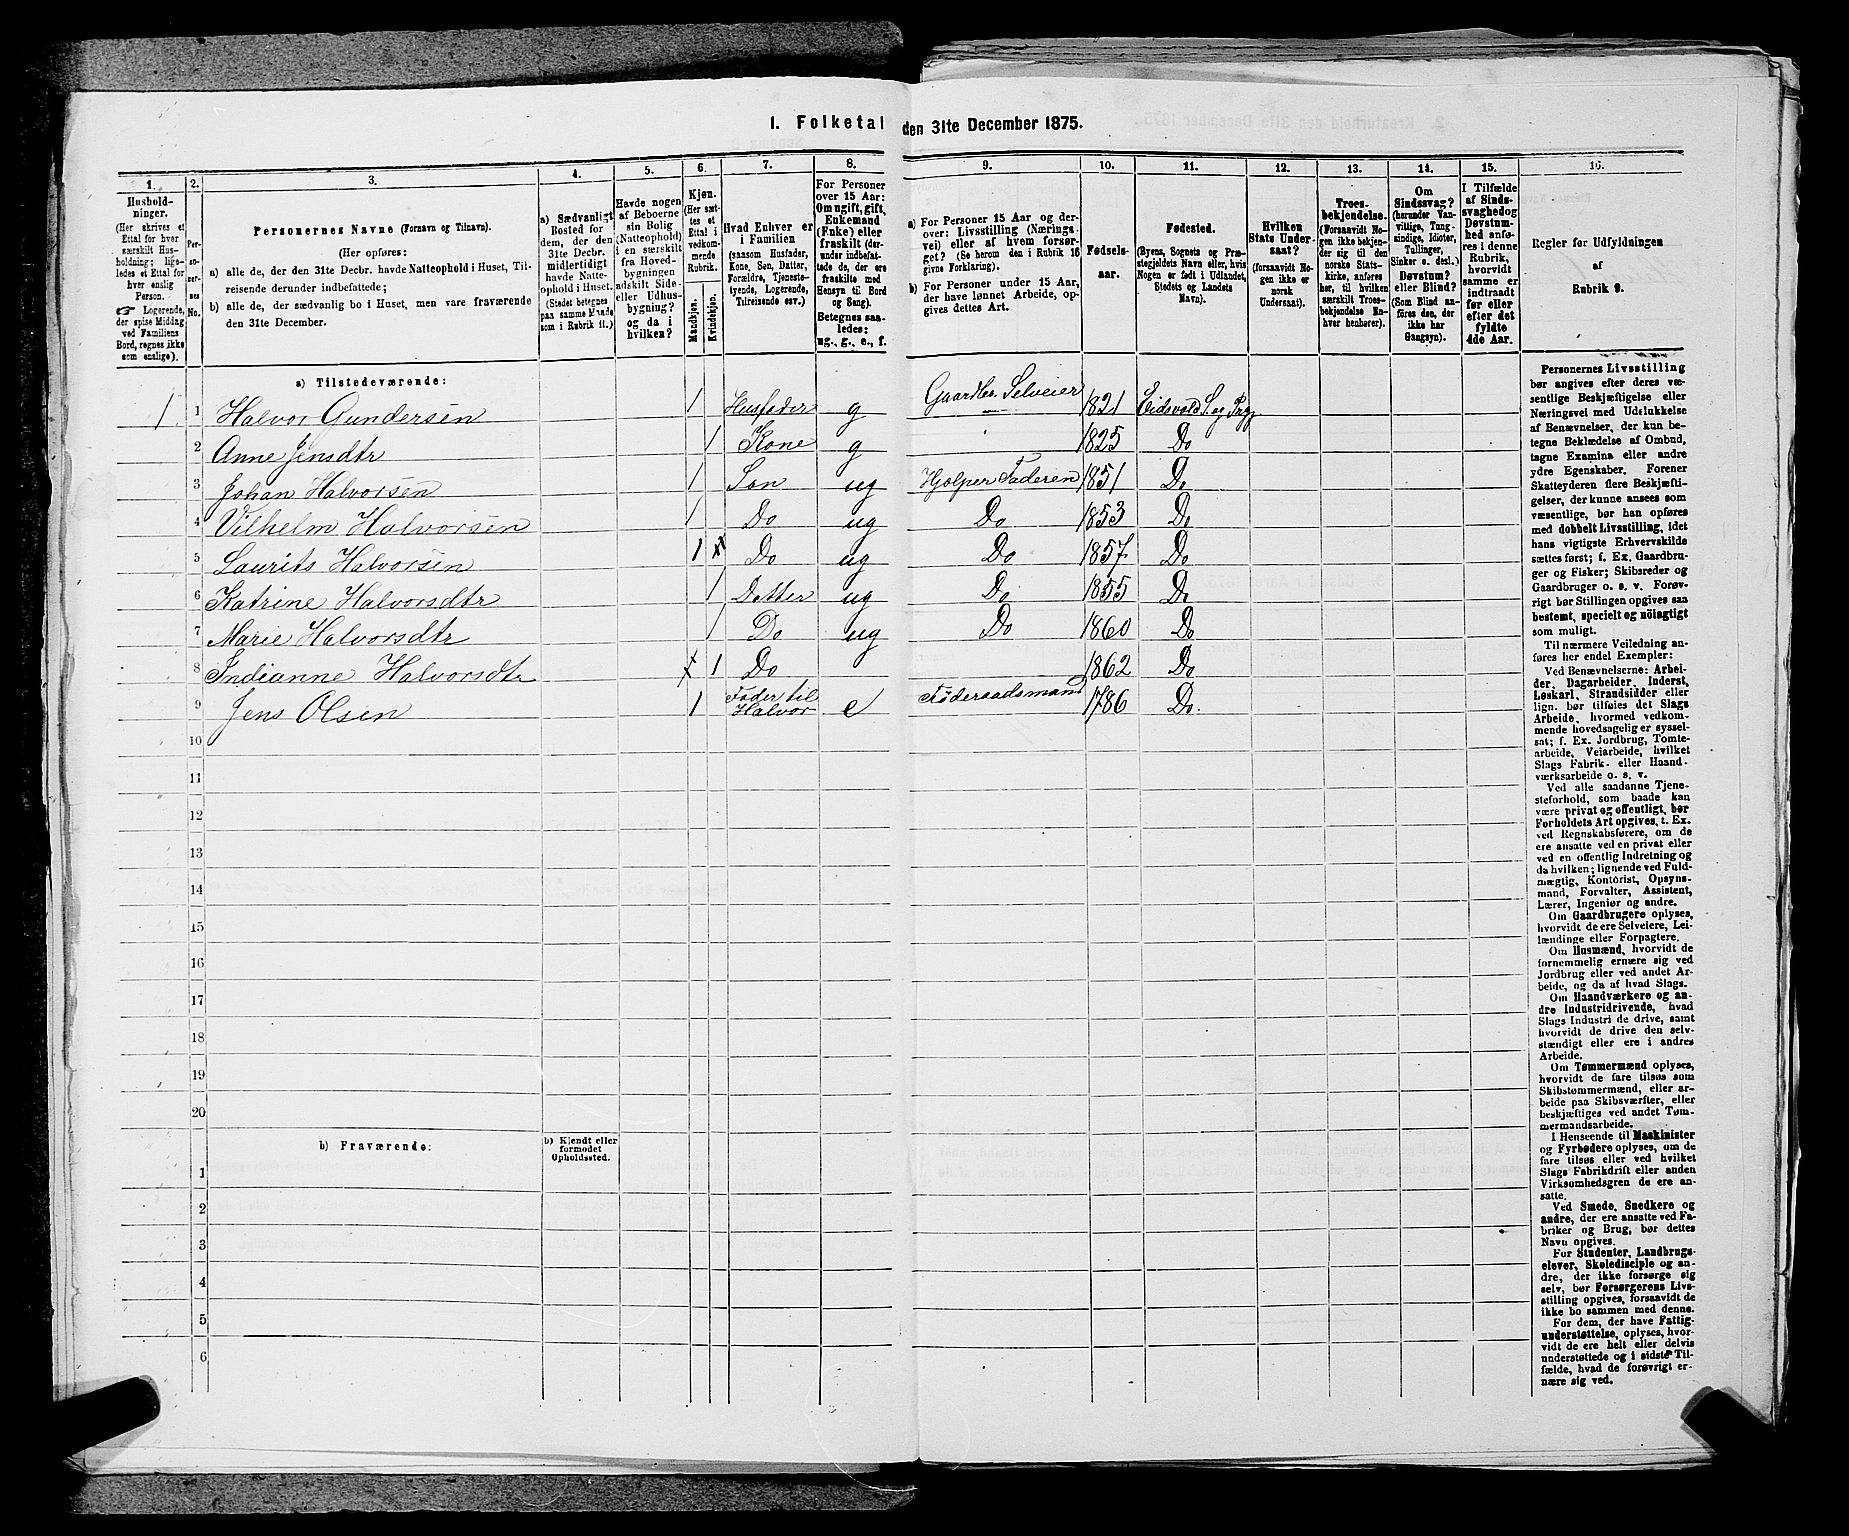 1. Folketal den 31te December 1875.
1.
Husholdninger.
(Her skrives et
Ettal for hver
særskilt Husholdning;
ligeledes et Ettal for
hver enslig
Person.
☞ Logerende,
der spise Middag
ved Familiens
Bord, regnes ikke
som enslige).
2.
Personernes
No.
3.
Personernes Navne (Fornavn og Tilnavn).
(Her opføres:
a) alle de, der den 31te Decbr. havde Natteophold i Huset, Tilreisende derunder indbefattede;
b) alle de, der sædvanlig bo i Huset, men vare fraværende
den 31te December.
4.
a) Sædvanligt
Bosted for
dem, der den
31te Decbr.
midlertidigt
havde Natteophold i Huset.
(Stedet betegnes
paa samme Maade
som i Rubrik 11.)
5.
Havde nogen
af Beboerne
sin Bolig
(Natteophold)
i en særskilt
fra Hovedbygningen
adskilt Side- eller Udhusbygning?
og da i
hvilken?
6.
Kjøn.
(Her sættes et
Ettal i
vedkommende
Rubrik.
Mandkjøn.
Kvindekjøn.
7.
Hvad Enhver er
i Familien
(saasom Husfader,
Kone, Søn, Datter,
Forældre, Tjenestetyende, Logerende,
Tilreisende osv.)
8.
For Personer
over 15 Aar:
Om ugift, gift,
Enkemand
(Enke) eller
fraskilt (derunder indbefattede de, der ere
fraskilte med
Hensyn til Bord
og Seng).
Betegnes saaledes:
ug., g., e., f.
9.
a) For Personer 15 Aar og derover: Livsstilling (Næringsvei) eller af hvem forsørget? (Se herom den i Rubrik 16
givne Forklaring).
b) For Personer under 15 Aar,
der have lønnet Arbeide, opgives dettes Art.
10.
Fødselsaar.
11.
Fødested.
(Byens, Sognets og Præstegjeldets Navn eller, hvis
Nogen er født i Udlandet,
Stedets og Landets
Navn).
12.
Hvilken
Stats Undersaat?
(forsaavidt Nogen ikke er
norsk
Undersaat).
13.
Troesbekjendelse.
(Forsaavidt Nogen ikke bekjender sig til den
norske Statskirke, anføres
her, til hvilken
særskilt Troesbekjendelse Enhver henhører).
14.
Om
Sindssvag?
(herunder Vanvittige, Tungsindige, Idioter,
Tullinger,
Sinker o. desl.)
Døvstum?
eller Blind?
(Som Blind anføres den, der
ikke har
Gangsyn).
15.
I Tilfælde
af Sindssvaghed og
Døvstumhed anføres i denne
Rubrik,
hvorvidt
samme er
indtraadt
før eller
efter det
fyldte
4de Aar.
16.
Regler for Udfyldningen
af
Rubrik 9.
a) Tilstedeværende:
1 1 Halvor Gundersen 1 Husfader g Gaardbr. Selveier 1821 Eidsvold S. og Prgj.
2 Anne Jensdtr 1 Kone g 1825 Do
3 Johan Halvorsen 1 Søn ug Hjælper Faderen 1851 Do
4 Vilhelm Halvorsen 1 Do ug Do 1853 Do
5 Laurits Halvorsen 1 Do ug Do 1857 Do
6 Katrine Halvorsdtr 1 Datter ug Do 1855 Do
7 Marie Halvorsdtr 1 Do ug Do 1860 Do
8 Indianne Halvorsdtr 1 Do 1862 Do
9 Jens Olsen 1 Fader til Halvor e Föderaadsmand 1786 Do.
10
11
12
13
14
15
16
17
18
19
20
b) Fraværende:
b) Kjendt eller
formodet
Opholdssted.
1
2
3
4
5
6
Personernes Livsstilling
bør angives efter deres væsentlige Beskjæftigelse eller
Næringsvei med Udelukkelse
af Benævnelser, der kun betegne Beklædelse af Ombud,
tagne Examina eller andre
ydre Egenskaber. Forener
Skatteyderen flere Beskjæftigelser, der kunne ansees som
væsentlige, bør han opføres
med dobbelt Livsstilling, idet
hans vigtigste Erhvervskilde
sættes først; f. Ex. Gaardbruger og Fisker; Skibsreder og
Gaardbruger o. s. v. Forøvrigt bør Stillingen opgives saa
bestemt, specielt og nöiagtigt
som muligt.
Til nærmere Veiledning anføres her endel Exempler:
Ved Benævnelserne: Arbeider, Dagarbeider, Inderst,
Løskarl, Strandsidder eller
lign. bør tilføies det Slags
Arbeide, hvormed vedkommende hovedsagelig er sysselsat; f. Ex. Jordbrug, Tomtearbeide, Veiarbeide, hvilket
Slags Fabrik- eller Haandværksarbeide o. s. v.
Ved alle saadanne Tjenesteforhold, som baade kan
være privat og offentligt, bør
Forholdets Art opgives, t. Ex.
ved Regnskabsførere, om de
ere ansatte ved en privat eller
ved en offentlig Indretning og
da hvilken; lignende ved Fuldmægtig, Kontorist, Opsynsmand, Forvalter, Assistent,
Lærer, Ingeniør og andre.
Om Gaardbrugere oplyses,
hvorvidt de ere Selveiere, Leilændinge eller Forpagtere.
Om Husmænd, hvorvidt de
fornemmelig ernære sig ved
Jordbrug eller ved andet Arbeide, og da af hvad Slags.
Om Haandværkere og andre Industridrivende, hvad
Slags Industri de drive, samt
hvorvidt de drive den selvstændigt eller ere i andres
Arbeide.
Om Tømmermænd oplyses,
hvorvidt de fare tilsøs som
Skibstømmermænd, eller arbeide paa Skibsværfter, eller
beskjæftiges ved andet Tømmermandsarbeide.
I Henseende til Maskinister
og Fyrbødere oplyses, om de
fare tilsøs eller ved hvilket
Slags Fabrikdrift eller anden
Virksomhedsgren de ere ansatte.
Ved Smede, Snedkere og
andre, der ere ansatte ved Fabriker og Brug, bør dettes
Navn opgives.
For Studenter, Landbrugselever, Skoledisciple og andre, der ikke forsørge sig
selv, bør Forsørgerens Livsstilling opgives, forsaavidt de
ikke bo sammen med denne.
For dem, der have Fattigunderstøttelse, oplyses, hvorvidt de ere helt eller delvis
understøttede og i sidste Tilfælde, hvad de forøvrigt ernære sig ved.